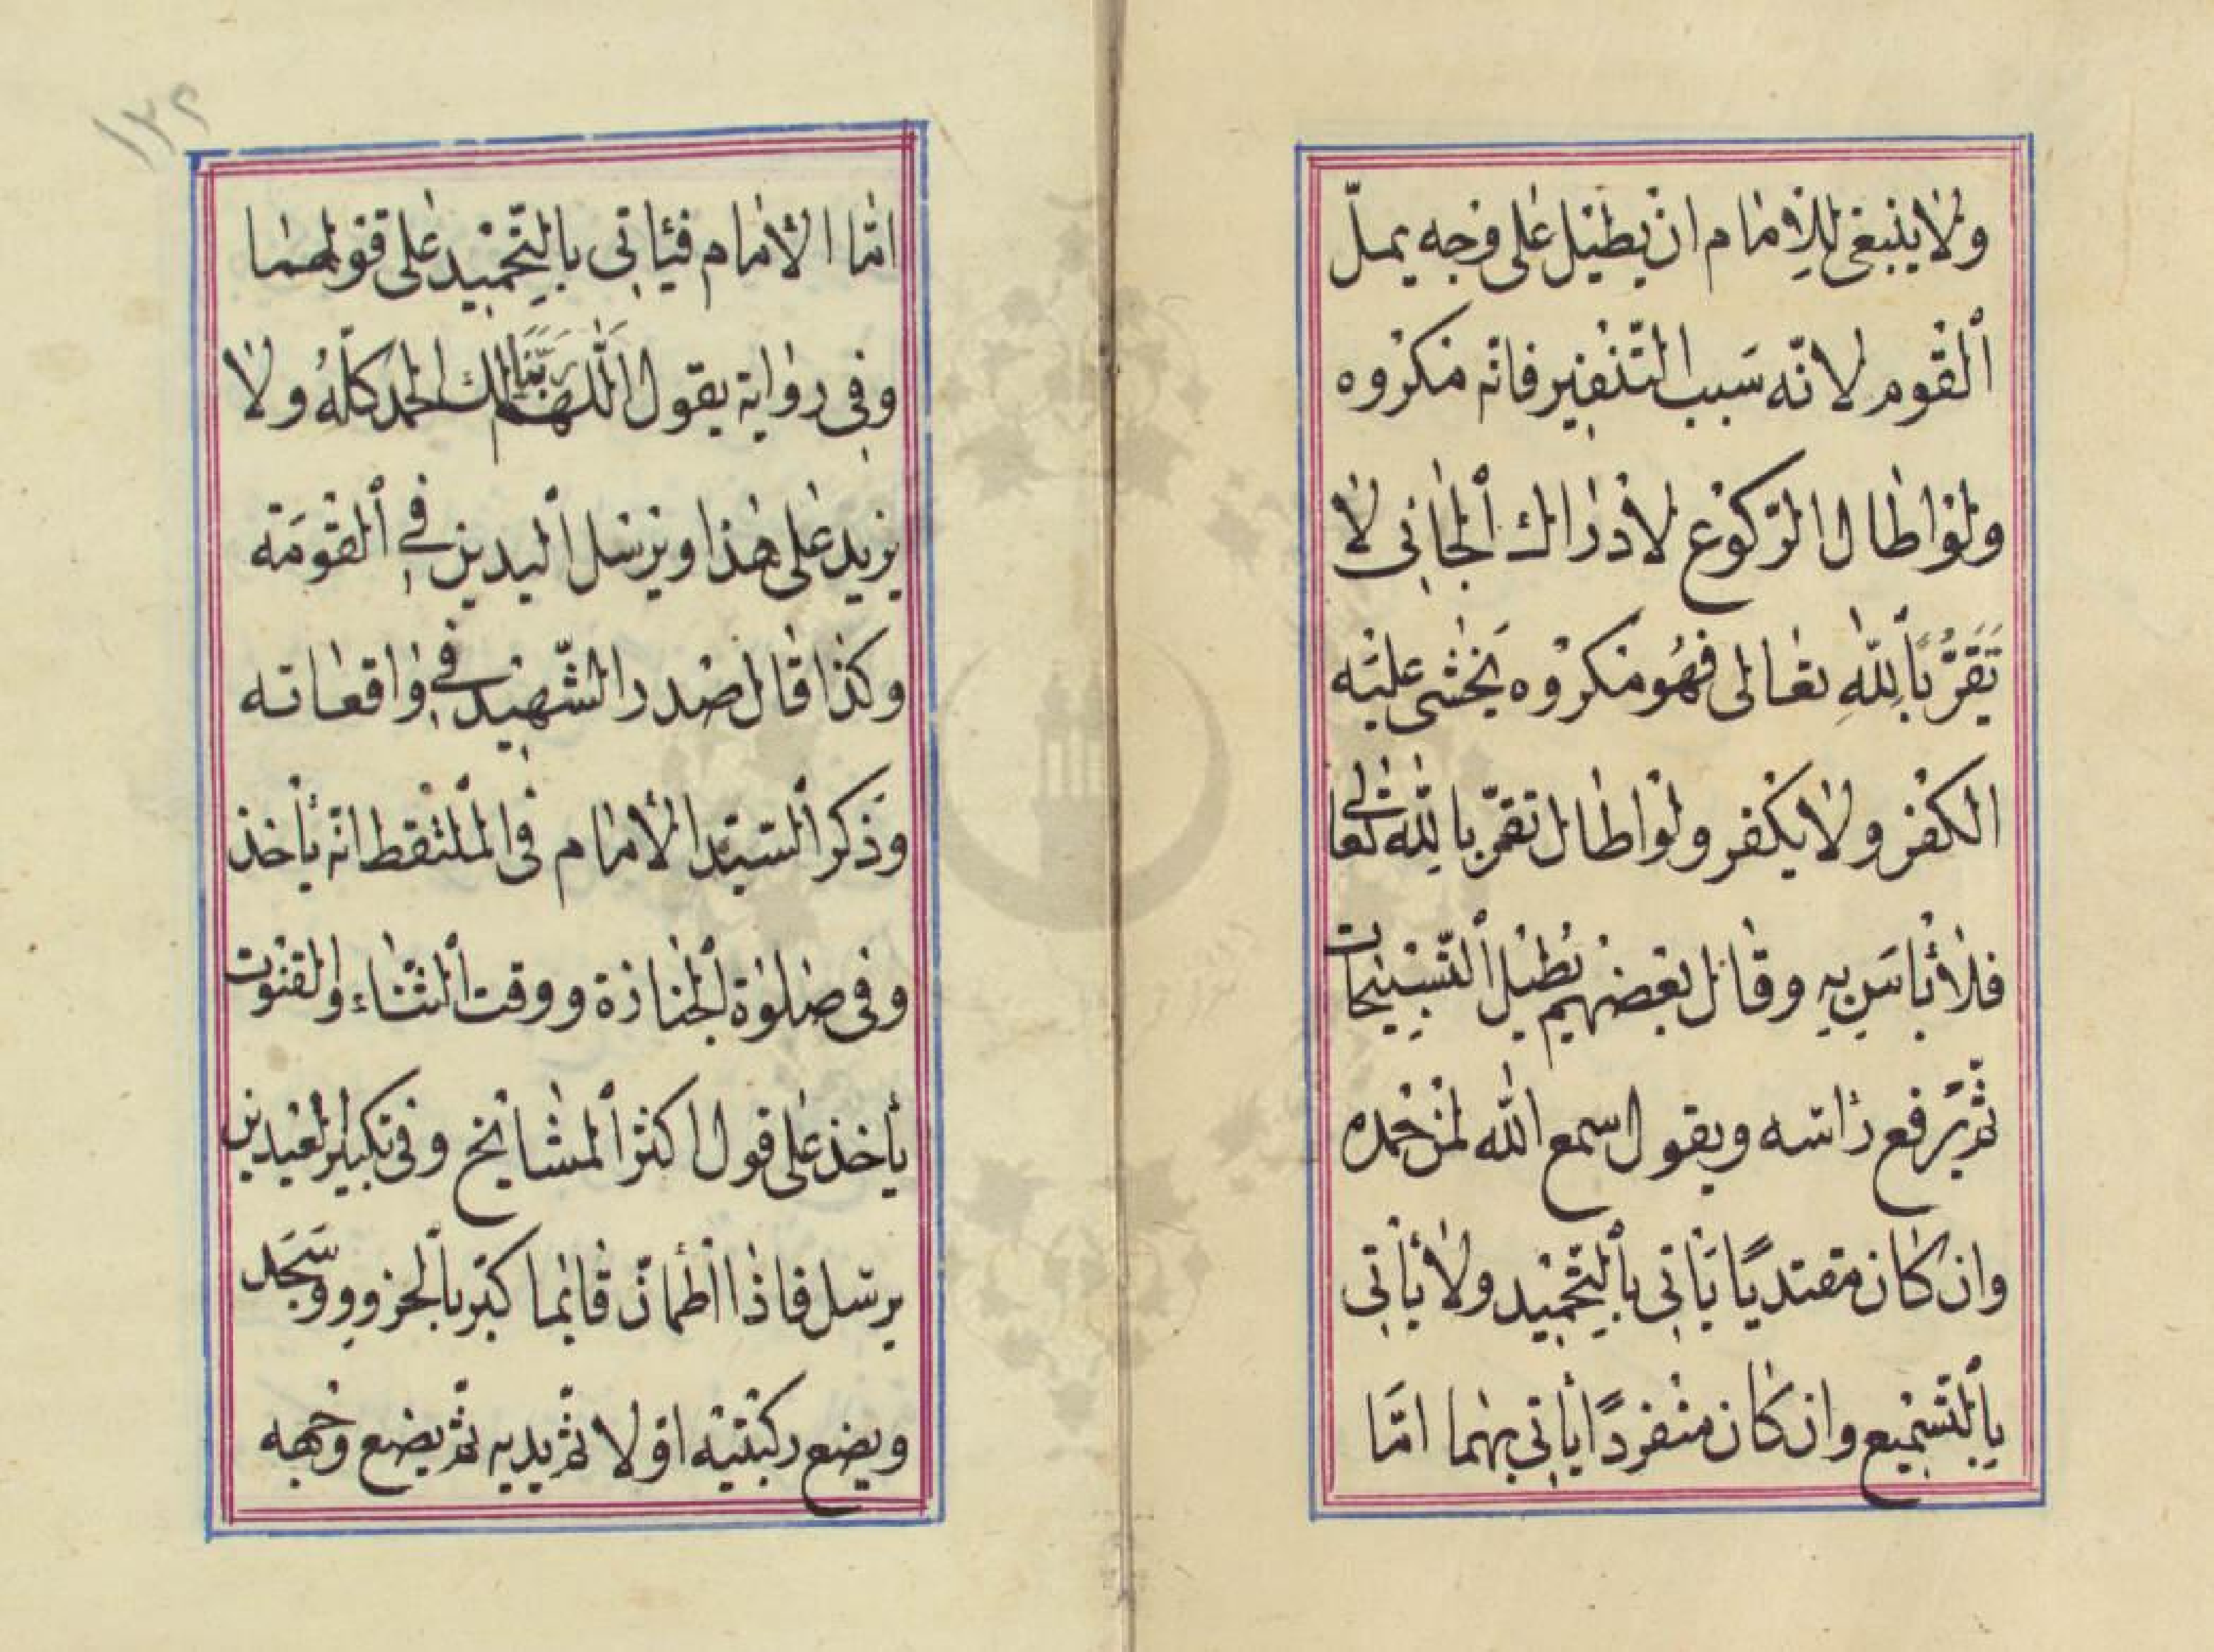 ولا ينبغى للامام ان يطيل على وجه يملّ
ٱلقوم لانّه سَبب التّنفير فانّه مكروه
ولو اطال الرّكوع لادراك ٱلجانى لا
تَقَرُّبًا بِٱللّٰهِ تعالى فهُو مكروه يَخشى عليه
الكفر ولا يكفر ولو اطال تقرّبا بالله تعالى
فلا بأسَ بِهِ وقال بعضهم يُطيل ٱلتّسبيحات
ثمّ يَرفع رأسه ويقول سمع اللّٰه لمن حمده
وان كان مقتديًا يَأتى بٱلتّحميد ولا يأتى
بٱلتّسميع وان كان منفردًا يأتى بهما امّا
امّا الأمام فيأتى بالتّحميد على قولهما
وفى رواية يقول اللّٰهمّ رَبَّنَا لك الحمد كلّهُ ولا
يزيد على هذا ويرسل ٱليدين فى ٱلقومَة
وكذا قال صدر الشّهيد فى واقعاته
وذَكر ٱلسيّد الأمام فى ٱلملتقط انّه يأخذ
وفى صلوة ٱلجنازة ووقت ٱلثّناء والقنوت
يأخذ على قول اكثر ٱلمشايخ وفى تكبير العيدين
يرسل فاذا اطمأنّ قايما كبّر بٱلحرور وسَجَد
ويضع ركبتيه اوّلا ثمّ يديه ثمّ يضع وجهه
١٢٩